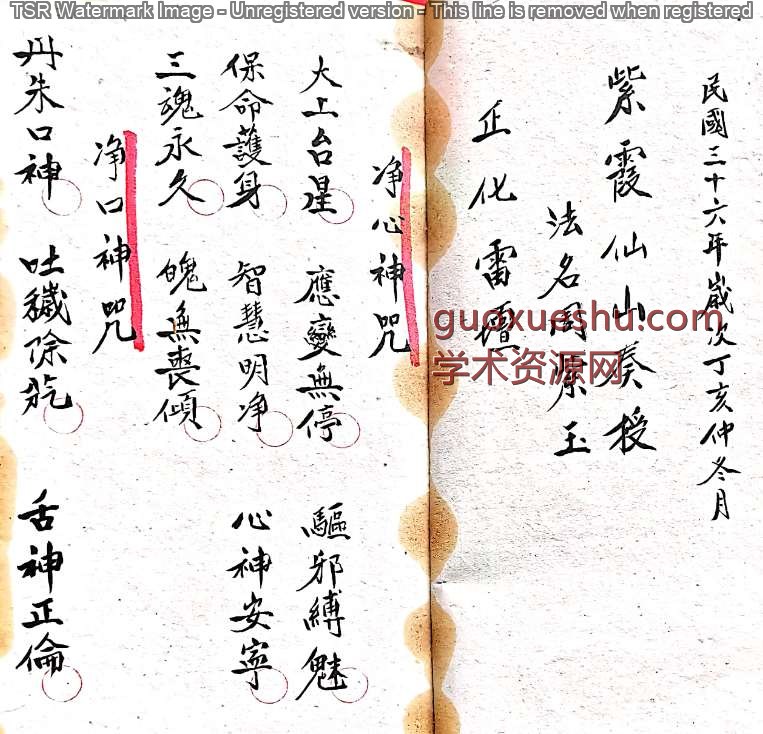 TSR Watermark Image - Unregistered version - This line is removed when registered
民國三十六年歲次丁亥仲冬月
紫霞仙山奏授
法名周際玉
正化雷壇
净心神咒
太上台星 應變無停 驅邪縛魅
保命護身 智慧明净 心神安寧
三魂永久 魄無喪傾
净口神咒
丹朱口神 吐穢除氛 舌神正倫
guoxueshu.com
学术资源网